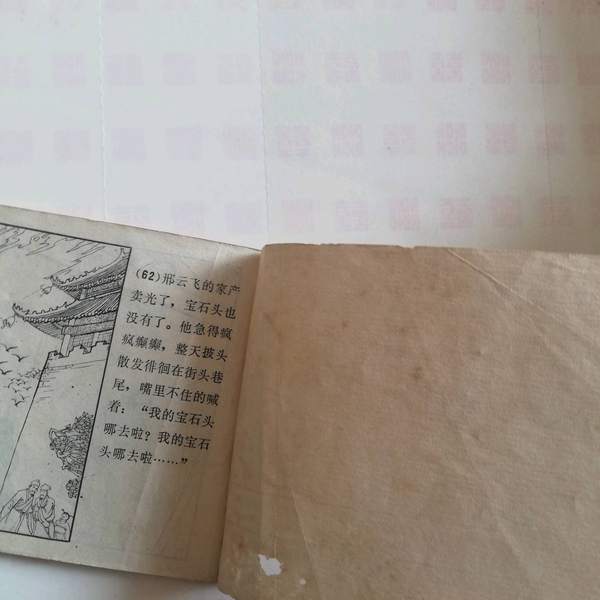 (62)邢云飞的家产
卖光了，宝石头也
没有了。他急得疯
疯癫癫，整天披头
散发徘徊在街头巷
尾，嘴里不住的喊
着：“我的宝石头
哪去啦？我的宝石
头哪去啦……”